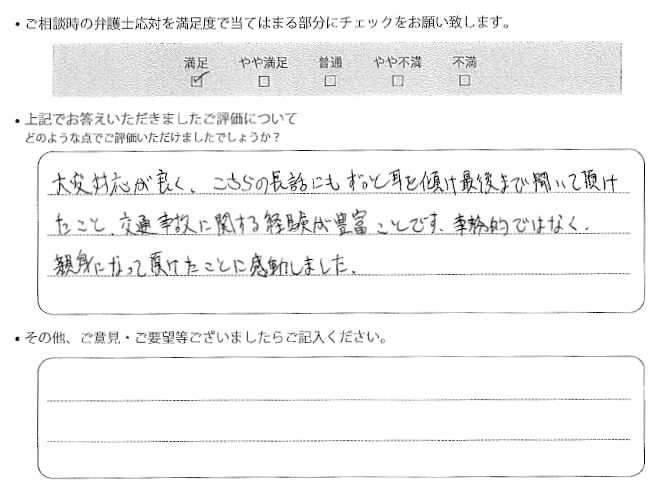 ・ご相談時の弁護士応対を満足度で当てはまる部分にチェックをお願い致します。
満足 やや満足 普通 やや不満 不満
・上記でお答えいただきましたご評価について
どのような点でご評価いただけましたでしょうか?
大変対応が良く、こちらの長話にもずっと耳を傾け最後まで聞いて頂け
たこと、交通事故に関する経験が豊富ことです。事務的ではなく、
親身になって頂けたことに感動しました。
・その他、ご意見・ご要望等ございましたらご記入ください。